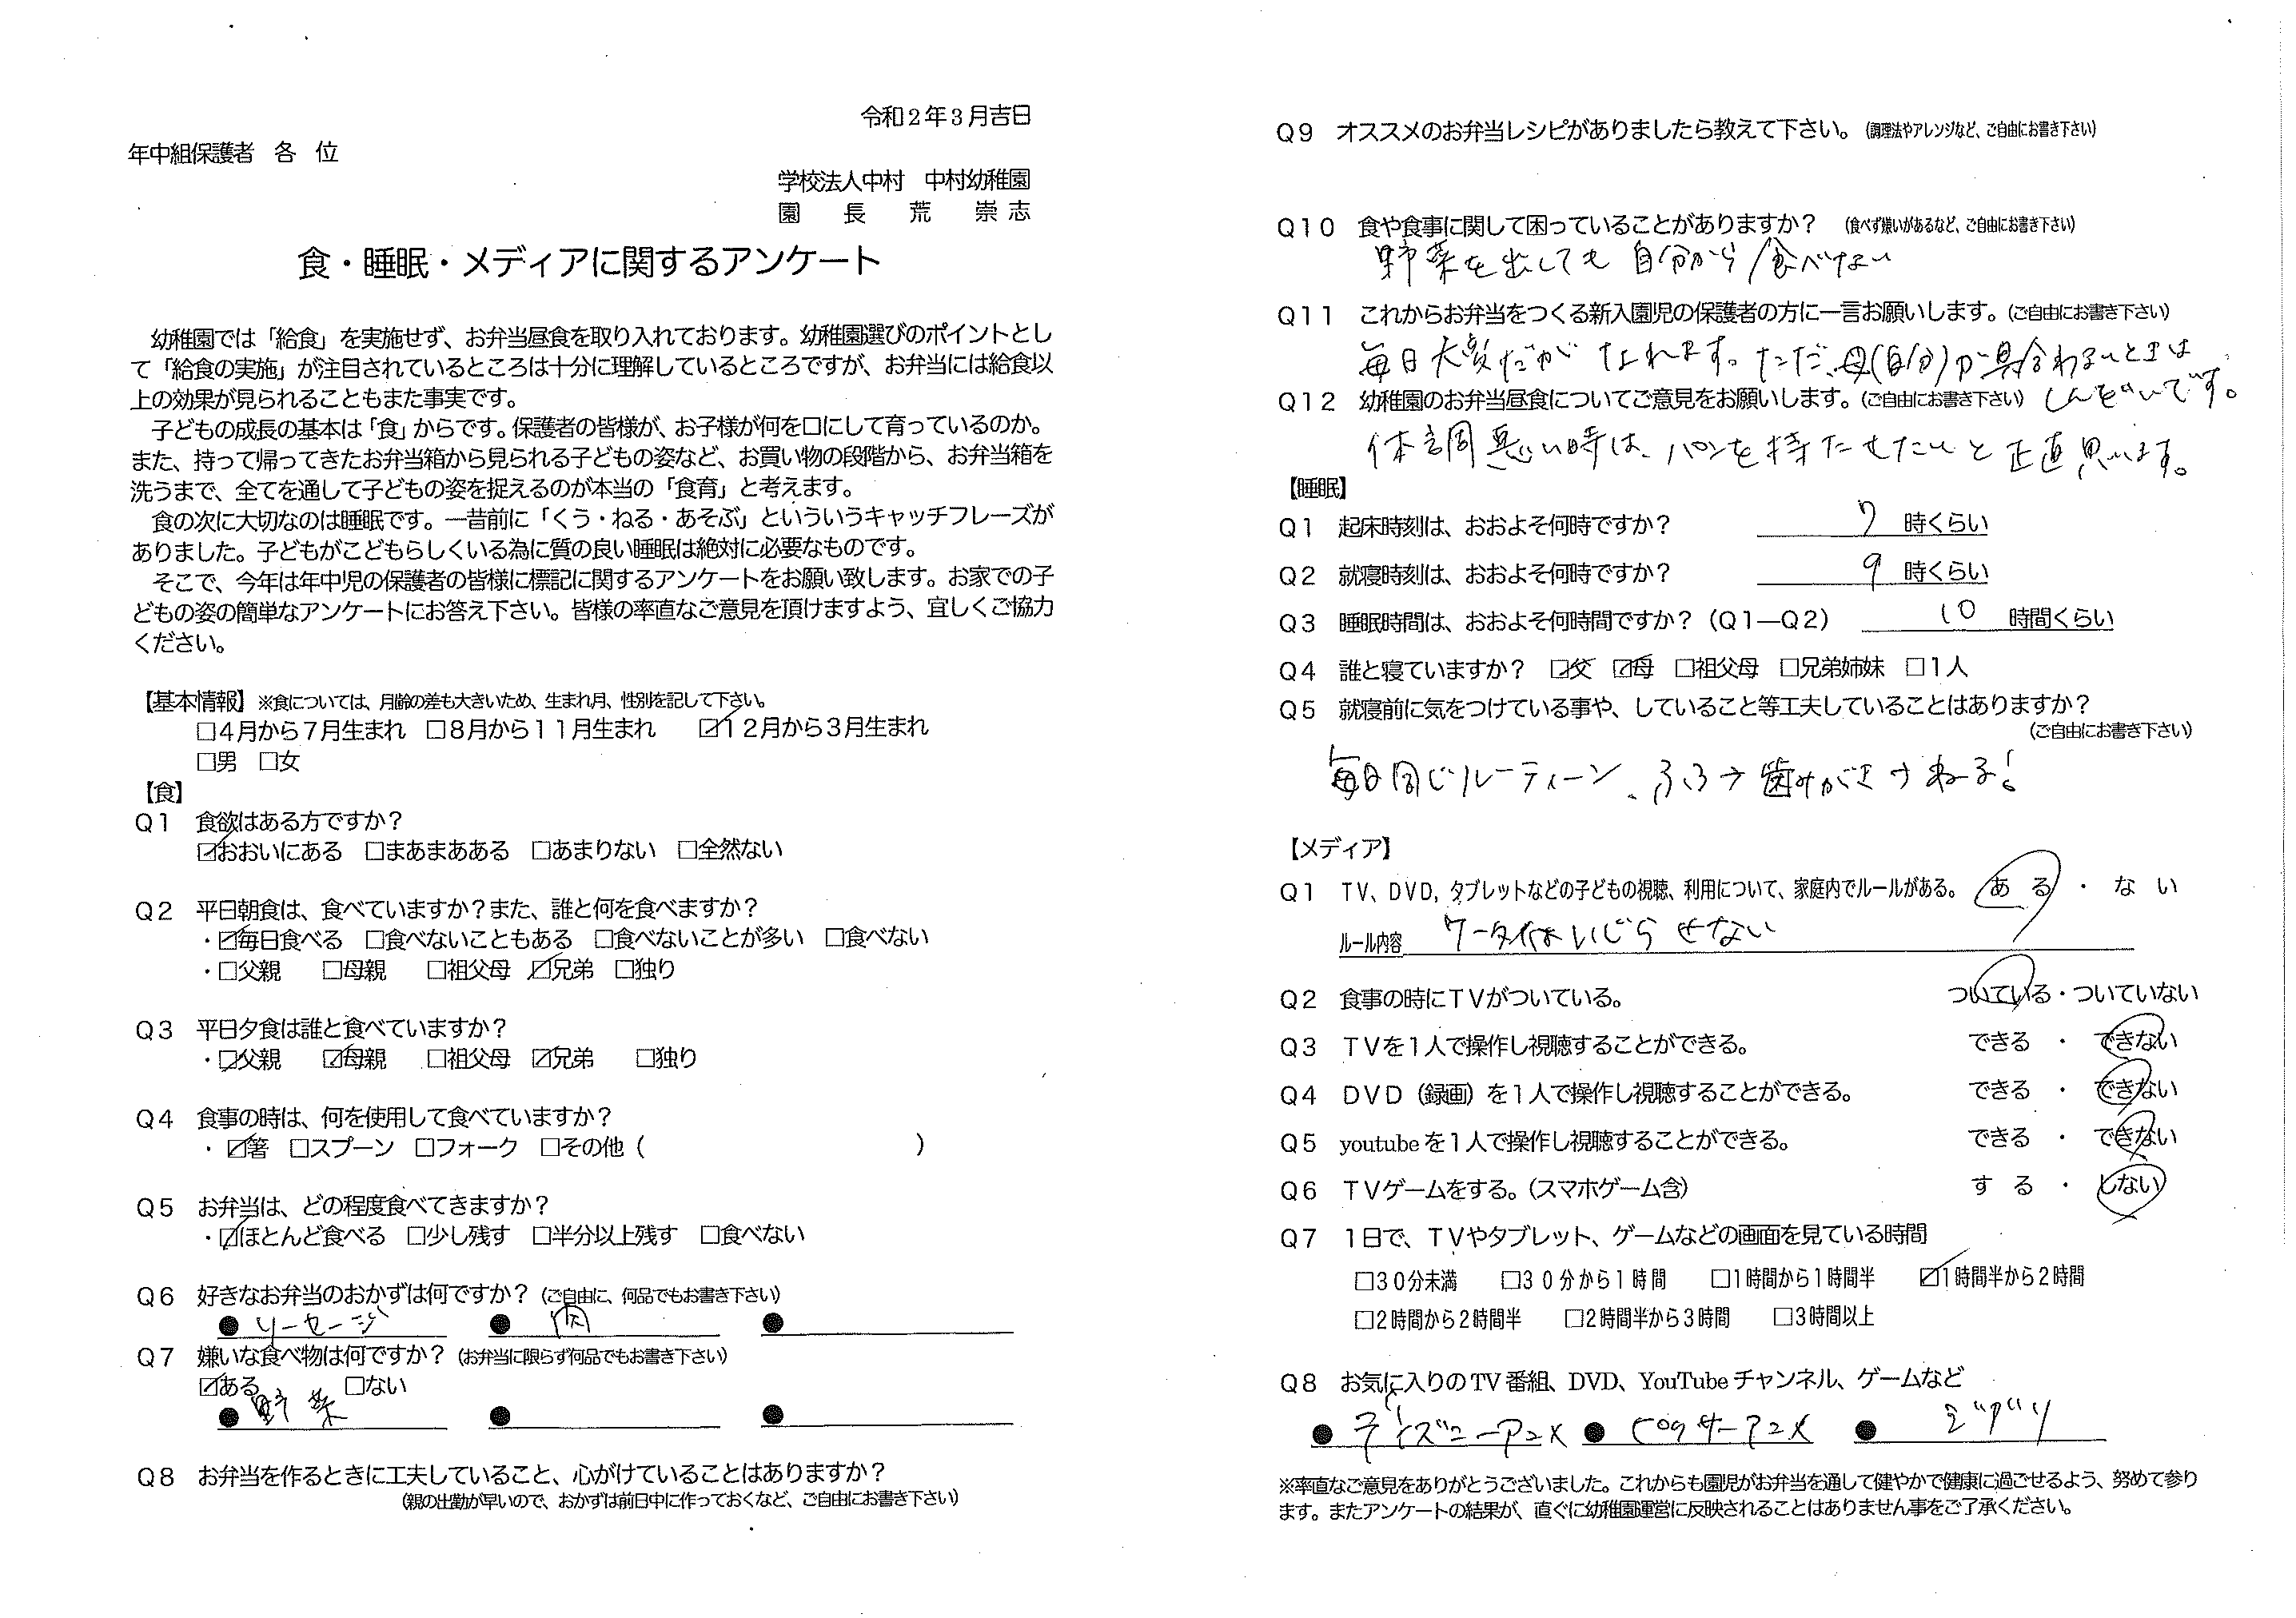 令和2年3月吉日
年中組保護者 各 位
学校法人中村 中村幼稚園
園 長 荒 崇志
食・睡眠・メディアに関するアンケート
幼稚園では「給食」を実施せず、お弁当昼食を取り入れております。幼稚園選びのポイントとし
て「給食の実施」が注目されているところは十分に理解しているところですが、お弁当には給食以
上の効果が見られることもまた事実です。
子どもの成長の基本は「食」からです。保護者の皆様が、お子様が何を口にして育っているのか。
また、持って帰ってきたお弁当箱から見られる子どもの姿など、お買い物の段階から、お弁当箱を
洗うまで、全てを通して子どもの姿を捉えるのが本当の「食育」と考えます。
食の次に大切なのは睡眠です。一昔前に「くう・ねる・あそぶ」といういうキャッチフレーズが
ありました。子どもがこどもらしくいる為に質の良い睡眠は絶対に必要なものです。
そこで、今年は年中児の保護者の皆様に標記に関するアンケートをお願い致します。お家での子
どもの姿の簡単なアンケートにお答え下さい。皆様の率直なご意見を頂けますよう、宜しくご協力
ください。
【基本情報】※食については、月齢の差も大きいため、生まれ月、性別を記して下さい。
□4月から7月生まれ □8月から11月生まれ ☑12月から3月生まれ
□男 □女
【食】
Q1 食欲はある方ですか?
☑おおいにある □まあまあある □あまりない □全然ない
Q2 平日朝食は、食べていますか?また、誰と何を食べますか?
・☑毎日食べる □食べないこともある □食べないことが多い □食べない
・□父親 □母親 □祖父母 ☑兄弟 □独り
Q3 平日夕食は誰と食べていますか?
・☑父親 ☑母親 □祖父母 ☑兄弟 □独り
Q4 食事の時は、何を使用して食べていますか?
・☑箸 □スプーン □フォーク □その他( )
Q5 お弁当は、どの程度食べてきますか?
・☑ほとんど食べる □少し残す □半分以上残す □食べない
Q6 好きなお弁当のおかずは何ですか?(ご自由に、何品でもお書き下さい)
●ソーセージ ●肉 ●
Q7 嫌いな食べ物は何ですか?(お弁当に限らず何品でもお書き下さい)
☑ある □ない
●野菜 ● ●
Q8 お弁当を作るときに工夫していること、心がけていることはありますか?
(親の出勤が早いので、おかずは前日中に作っておくなど、ご自由にお書き下さい)
Q9 オススメのお弁当レシピがありましたら教えて下さい。(調理法やアレンジなど、ご自由にお書き下さい)
Q10 食や食事に関して困っていることがありますか? (食べず嫌いがあるなど、ご自由にお書き下さい)
野菜を出しても自分から食べない
Q11 これからお弁当をつくる新入園児の保護者の方に一言お願いします。(ご自由にお書き下さい)
毎日大変だがなれます。ただ、母(自分)が具合わるいときは
しんどいです。
Q12 幼稚園のお弁当昼食についてご意見をお願いします。(ご自由にお書き下さい)
体調悪い時は、パンを持たせたいと正直思います。
【睡眠】
Q1 起床時刻は、おおよそ何時ですか? 7 時くらい
Q2 就寝時刻は、おおよそ何時ですか? 9 時くらい
Q3 睡眠時間は、おおよそ何時間ですか?(Q1―Q2) 10 時間くらい
Q4 誰と寝ていますか? ☑父 ☑母 □祖父母 □兄弟姉妹 □1人
Q5 就寝前に気をつけている事や、していること等工夫していることはありますか?
(ご自由にお書き下さい)
毎日同じルーティーン、ふろ→歯みがき→ねる!
【メディア】
Q1 TV、DVD,タブレットなどの子どもの視聴、利用について、家庭内でルールがある。 ある ・ ない
ルール内容 ケータイはいじらせない
Q2 食事の時にTVがついている。 ついている・ついていない
Q3 TVを1人で操作し視聴することができる。 できる ・ できない
Q4 DVD(録画)を1人で操作し視聴することができる。 できる ・ できない
Q5 youtubeを1人で操作し視聴することができる。 できる ・ できない
Q6 TVゲームをする。(スマホゲーム含) する ・ しない
Q7 1日で、TVやタブレット、ゲームなどの画面を見ている時間
□30分未満 □30分から1時間 □1時間から1時間半 ☑1時間半から2時間
□2時間から2時間半 □2時間半から3時間 □3時間以上
Q8 お気に入りのTV番組、DVD、YouTubeチャンネル、ゲームなど
●ディズニーアニメ ●アニメ ●
※率直なご意見をありがとうございました。これからも園児がお弁当を通して健やかで健康に過ごせるよう、努めて参り
ます。またアンケートの結果が、直ぐに幼稚園運営に反映されることはありません事をご了承ください。